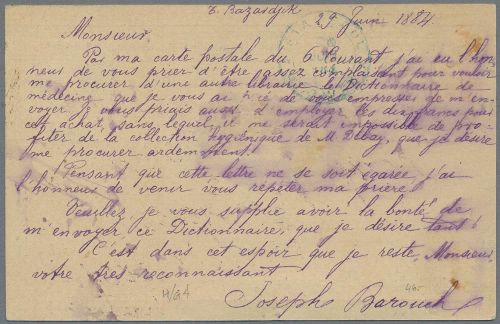 T. Bazardjik
29 Juin 1884
Monsieur.
Par ma carte postale du 6 Courant j'ai eu l'hon-
neur de vous prier d'être assez complaisant pour vouloir
me procurer d'une autre librairie le Dictionnaire de
médecine que je vous ai prié de vous empresser de m'en-
voyer. Je vous priais aussi d'employer les dix francs pour
cet achat, sans lequel il me serait impossible de pro-
fiter de la collection hygiénique de M que je désire
me procurer ardemment.
Pensant que cette lettre ne se soit égarée j'ai
l'honneur de venir vous répéter ma prière.
Veuillez je vous supplie avoir la bonté de
m'envoyer ce Dictionnaire, que je désire tant!
C'est dans cet espoir que je reste, Monsieur
votre très reconnaissant
Joseph Barouch